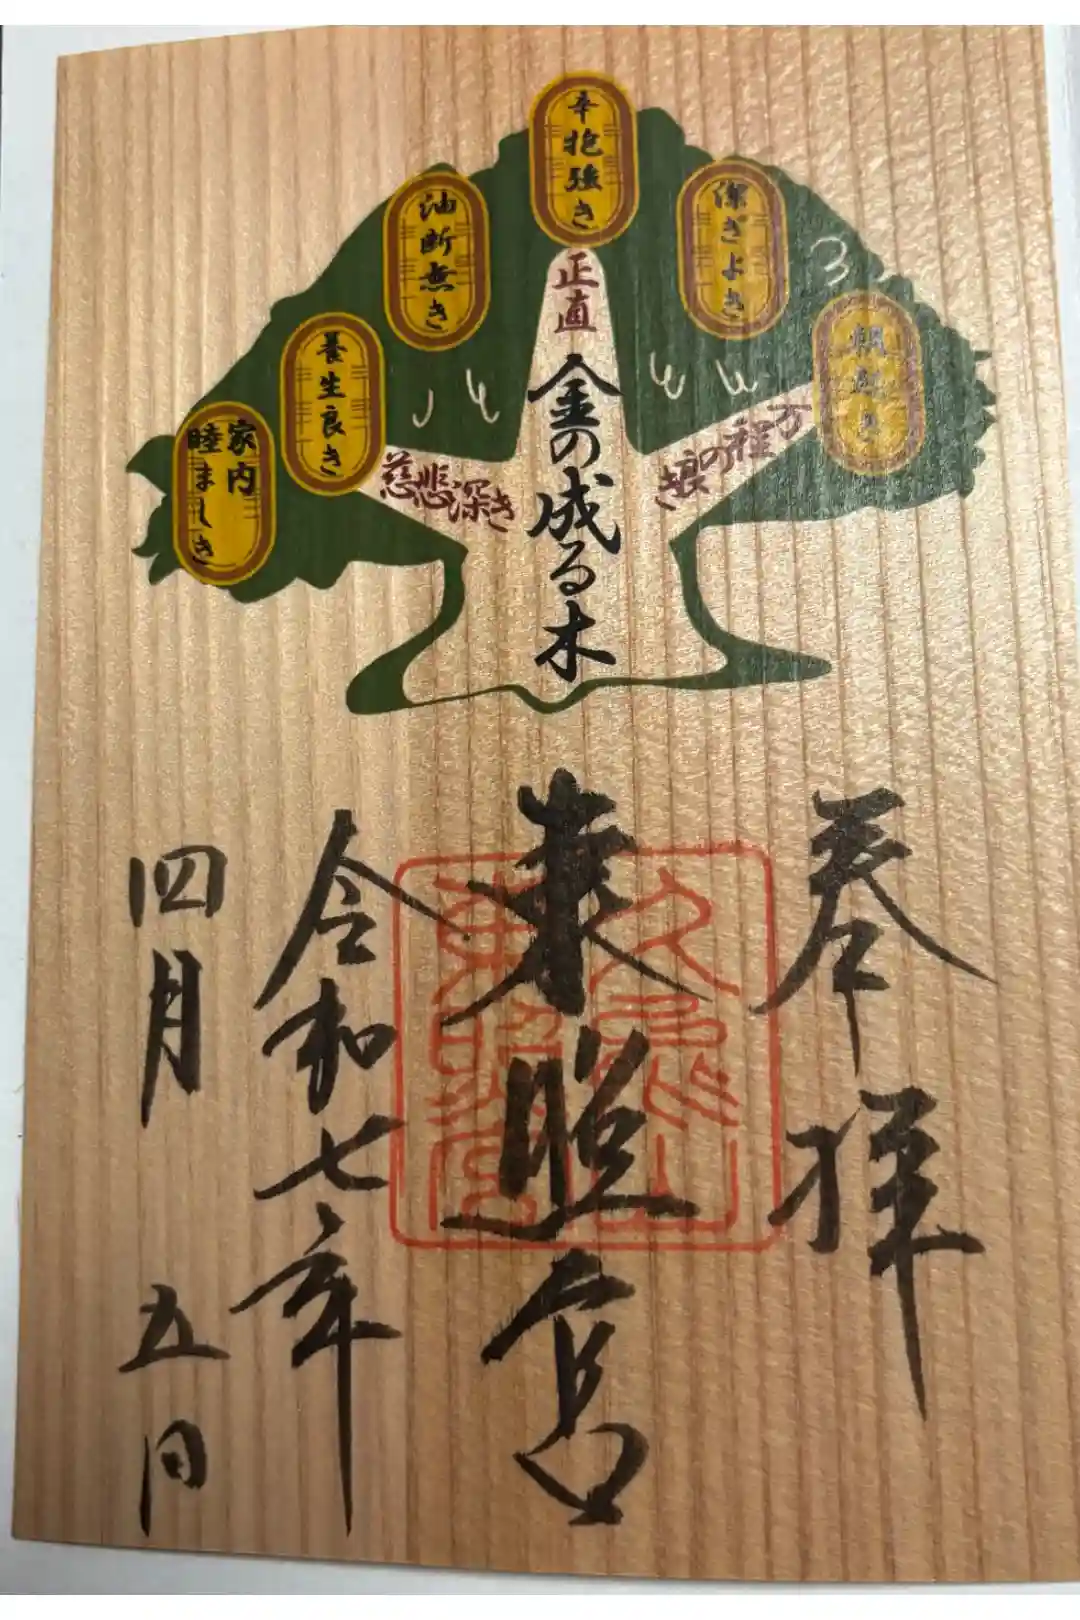 朝起き
稼ぎよき
辛抱強き
油断無き
養生良き
家内
睦ましき
万程の良き
正直
慈悲深き
金の成る木
奉拝
東照宮
令和七年
四月五日
久能山
東照宮